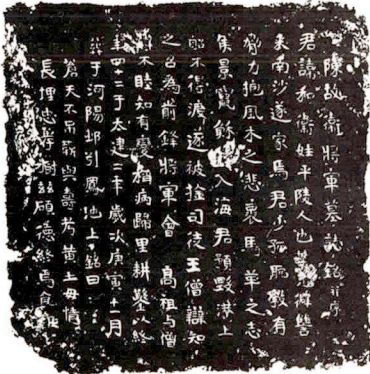 陳故衛將軍墓誌銘并序
君諱和衛姓平陵人也避讎
來南沙遂家焉君少孤毅有
力抱風木之悲裹馬革之志
侯景竄入海君預滬上
不得遂被司徒王僧辯知
之召為前鋒將軍會高祖與僧
辯不睦知有變稱病歸里耕鑿以終
年四十二于太建二年歲次庚寅十一月
葬于河陽邱引鳳地上銘曰
蒼天不弔爵與壽考黃土毋情
長埋忠孝樹茲碩德終焉食報